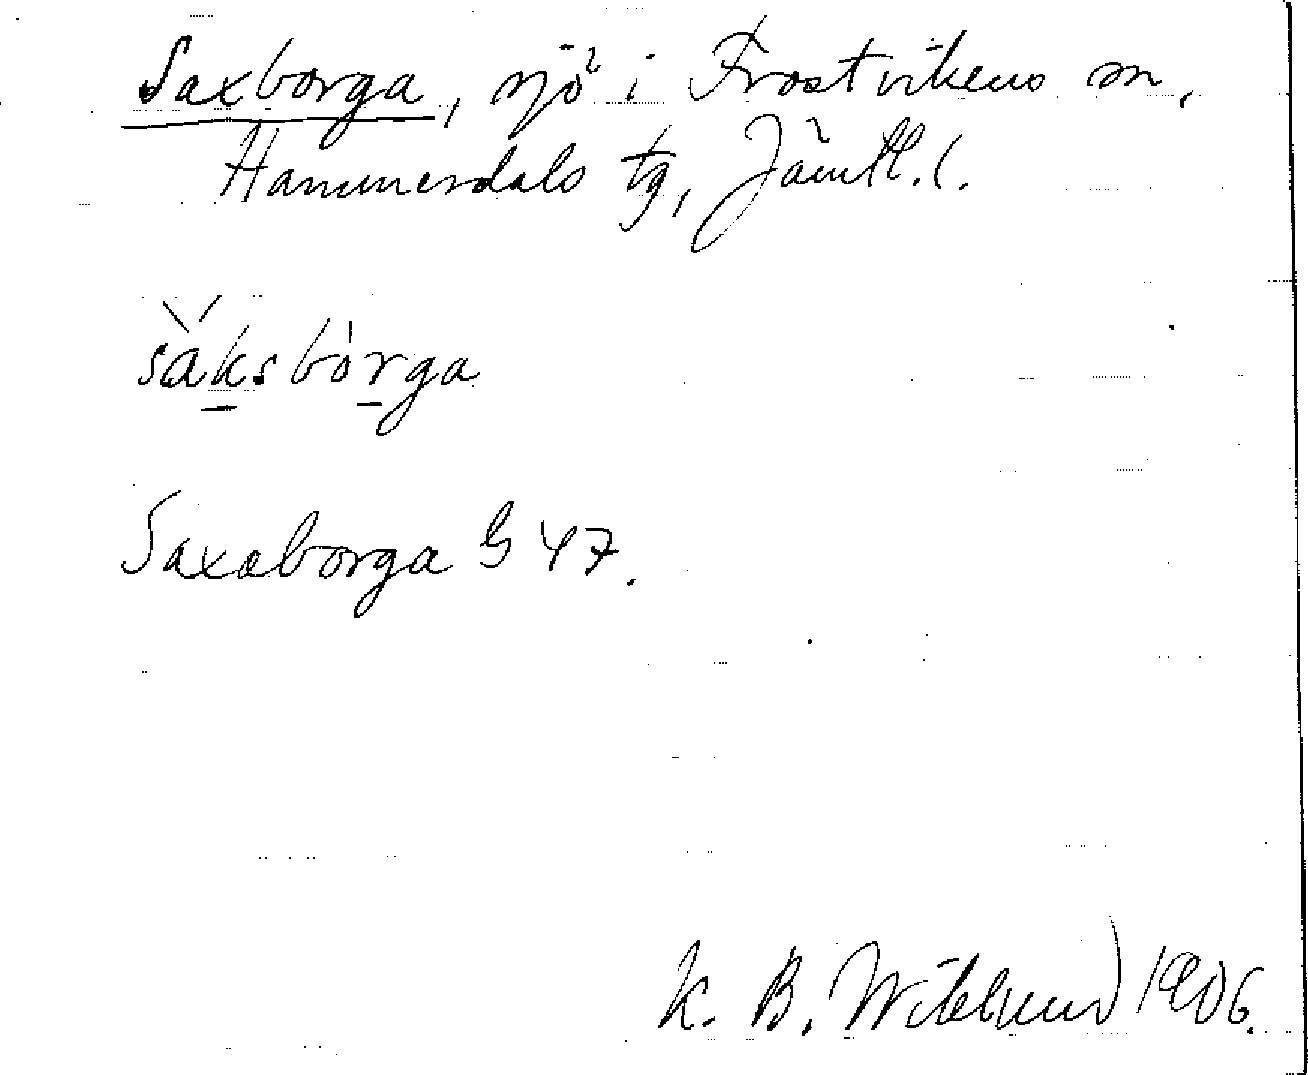 Saxborga, sjö i Frostvikens sn,
Hammerdals tg, Jämtl. l.
sàksbòrga
Saxaborga G 47.
K. B. Wiklund 1906.